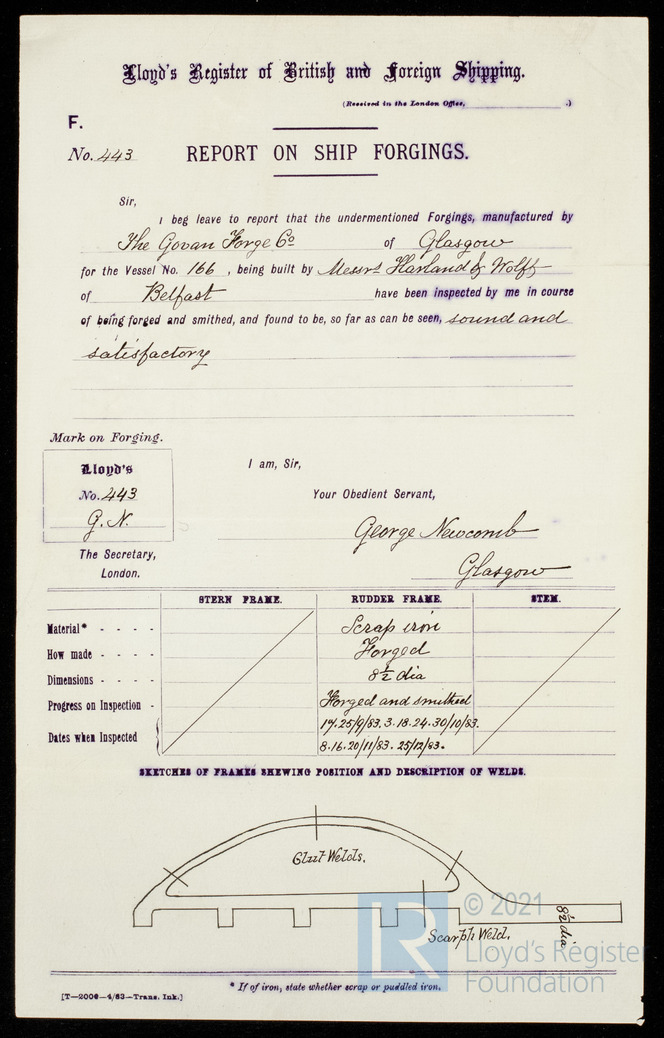 Lloyd's Register of British and Foreign Shipping.
(Received in the London Office, .)
F.
No. 443 REPORT ON SHIP FORGINGS.
Sir,
I beg leave to report that the undermentioned Forgings, manufactured by
The Govan Forge Co of Glasgow
for the Vessel No. 166, being built by Messrs Harland & Wolff
of Belfast have been inspected by me in course
of being forged and smithed, and found to be, so far as can be seen, sound and
satisfactory
Mark on Forging.
Lloyd's
No. 443
G. N.
I am, Sir,
Your Obedient Servant,
George Newcomb
Glasgow
The Secretary,
London.
STERN FRAME. RUDDER FRAME. STEM.
Material* - - - - Scrap iron
How made - - - - Forged
Dimensions - - - - 8½ dia
Progress on Inspection - Forged and smithed
Dates when Inspected 17.25/9/83. 3.18.24.30/10/83.
8.16.20/11/83. 25/12/83.
SKETCHES OF FRAMES SHEWING POSITION AND DESCRIPTION OF WELDS.
Glut Welds.
8½ dia
Scarph Weld.
© 2021
LR
Lloyd's Register
Foundation
* If of iron, state whether scrap or puddled iron.
[T—2000—4/83—Trans. Ink.]